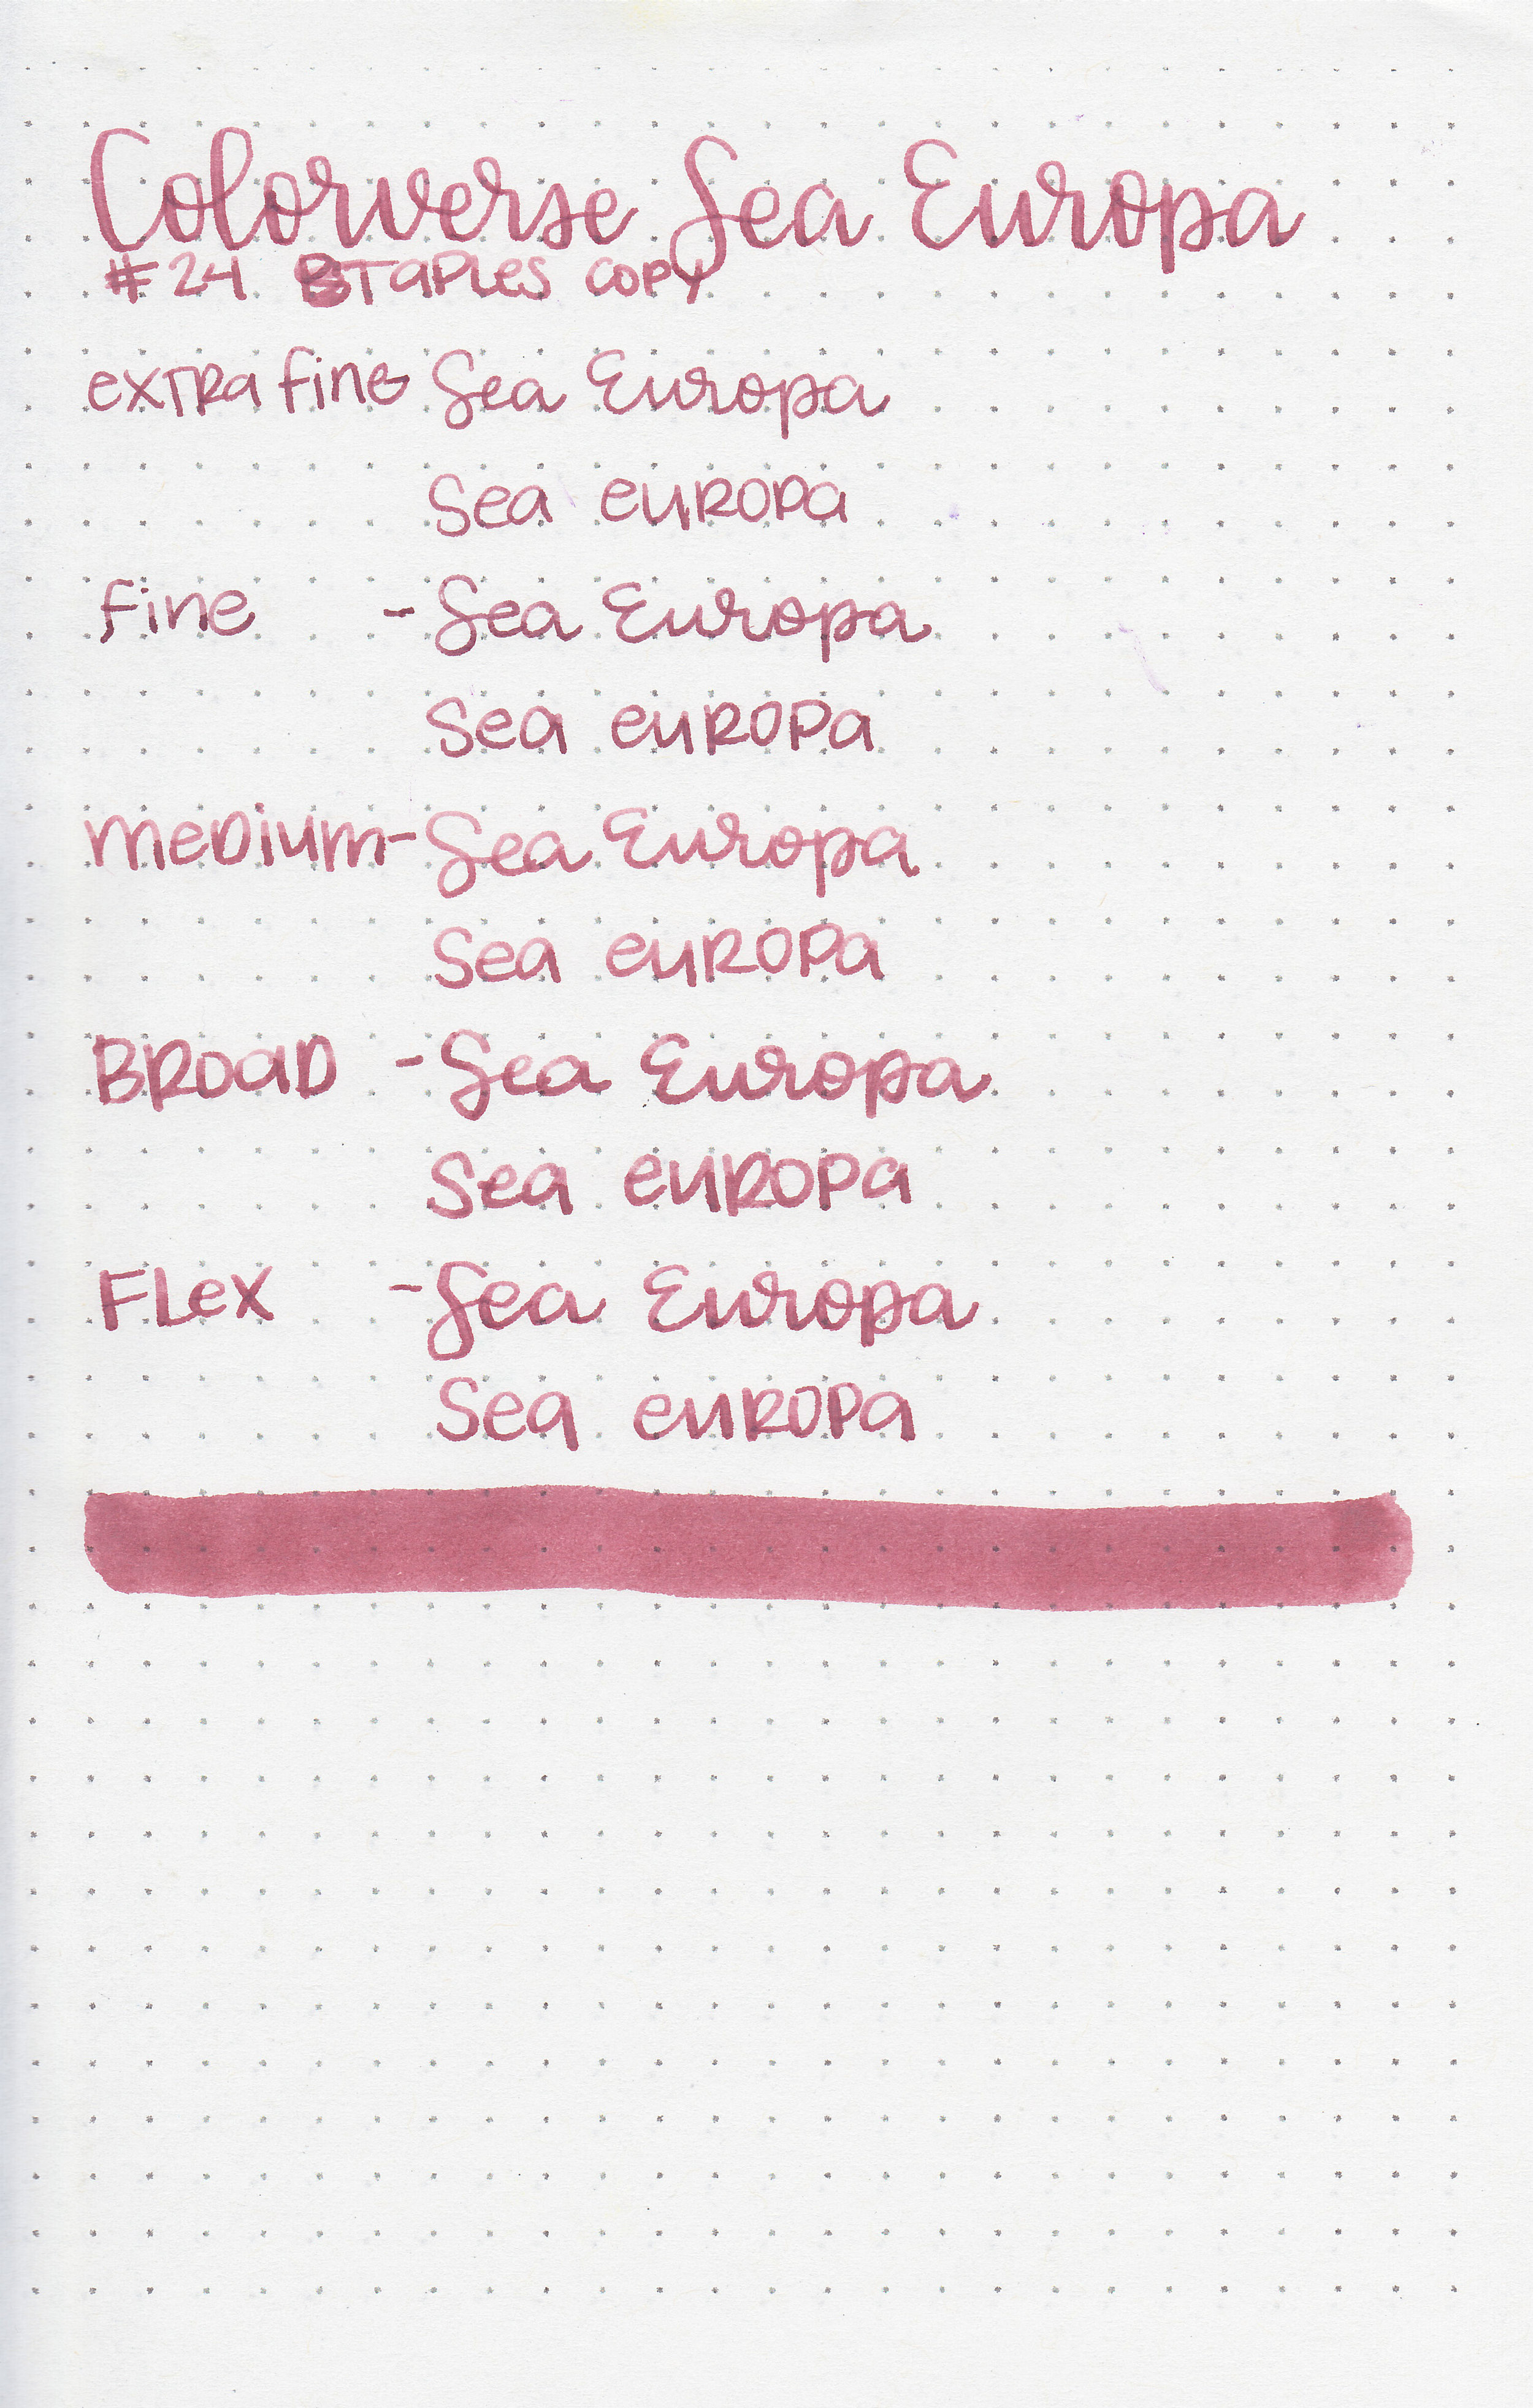 Colorverse Sea Europa
#24 Staples copy
extra fine Sea Europa
Sea europa
fine - Sea Europa
Sea europa
medium - Sea Europa
Sea europa
Broad - Sea Europa
Sea europa
Flex - Sea Europa
Sea europa